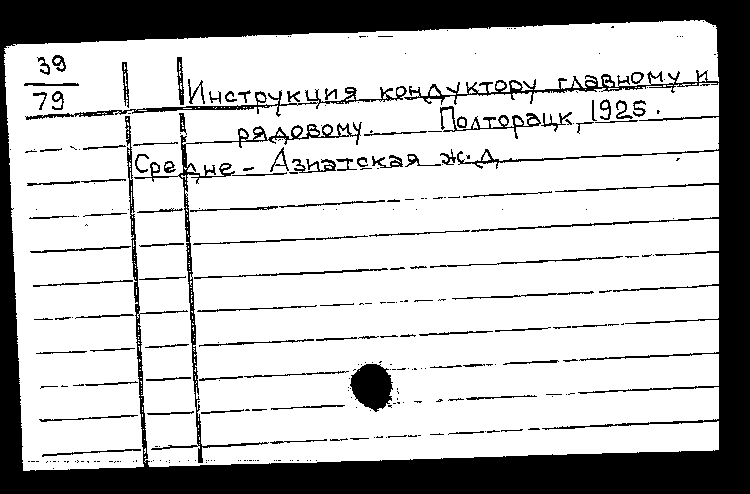 39
79
Инструкция кондуктору главному и
рядовому. Полторацк, 1925.
Средне - Азиатская ж.д.